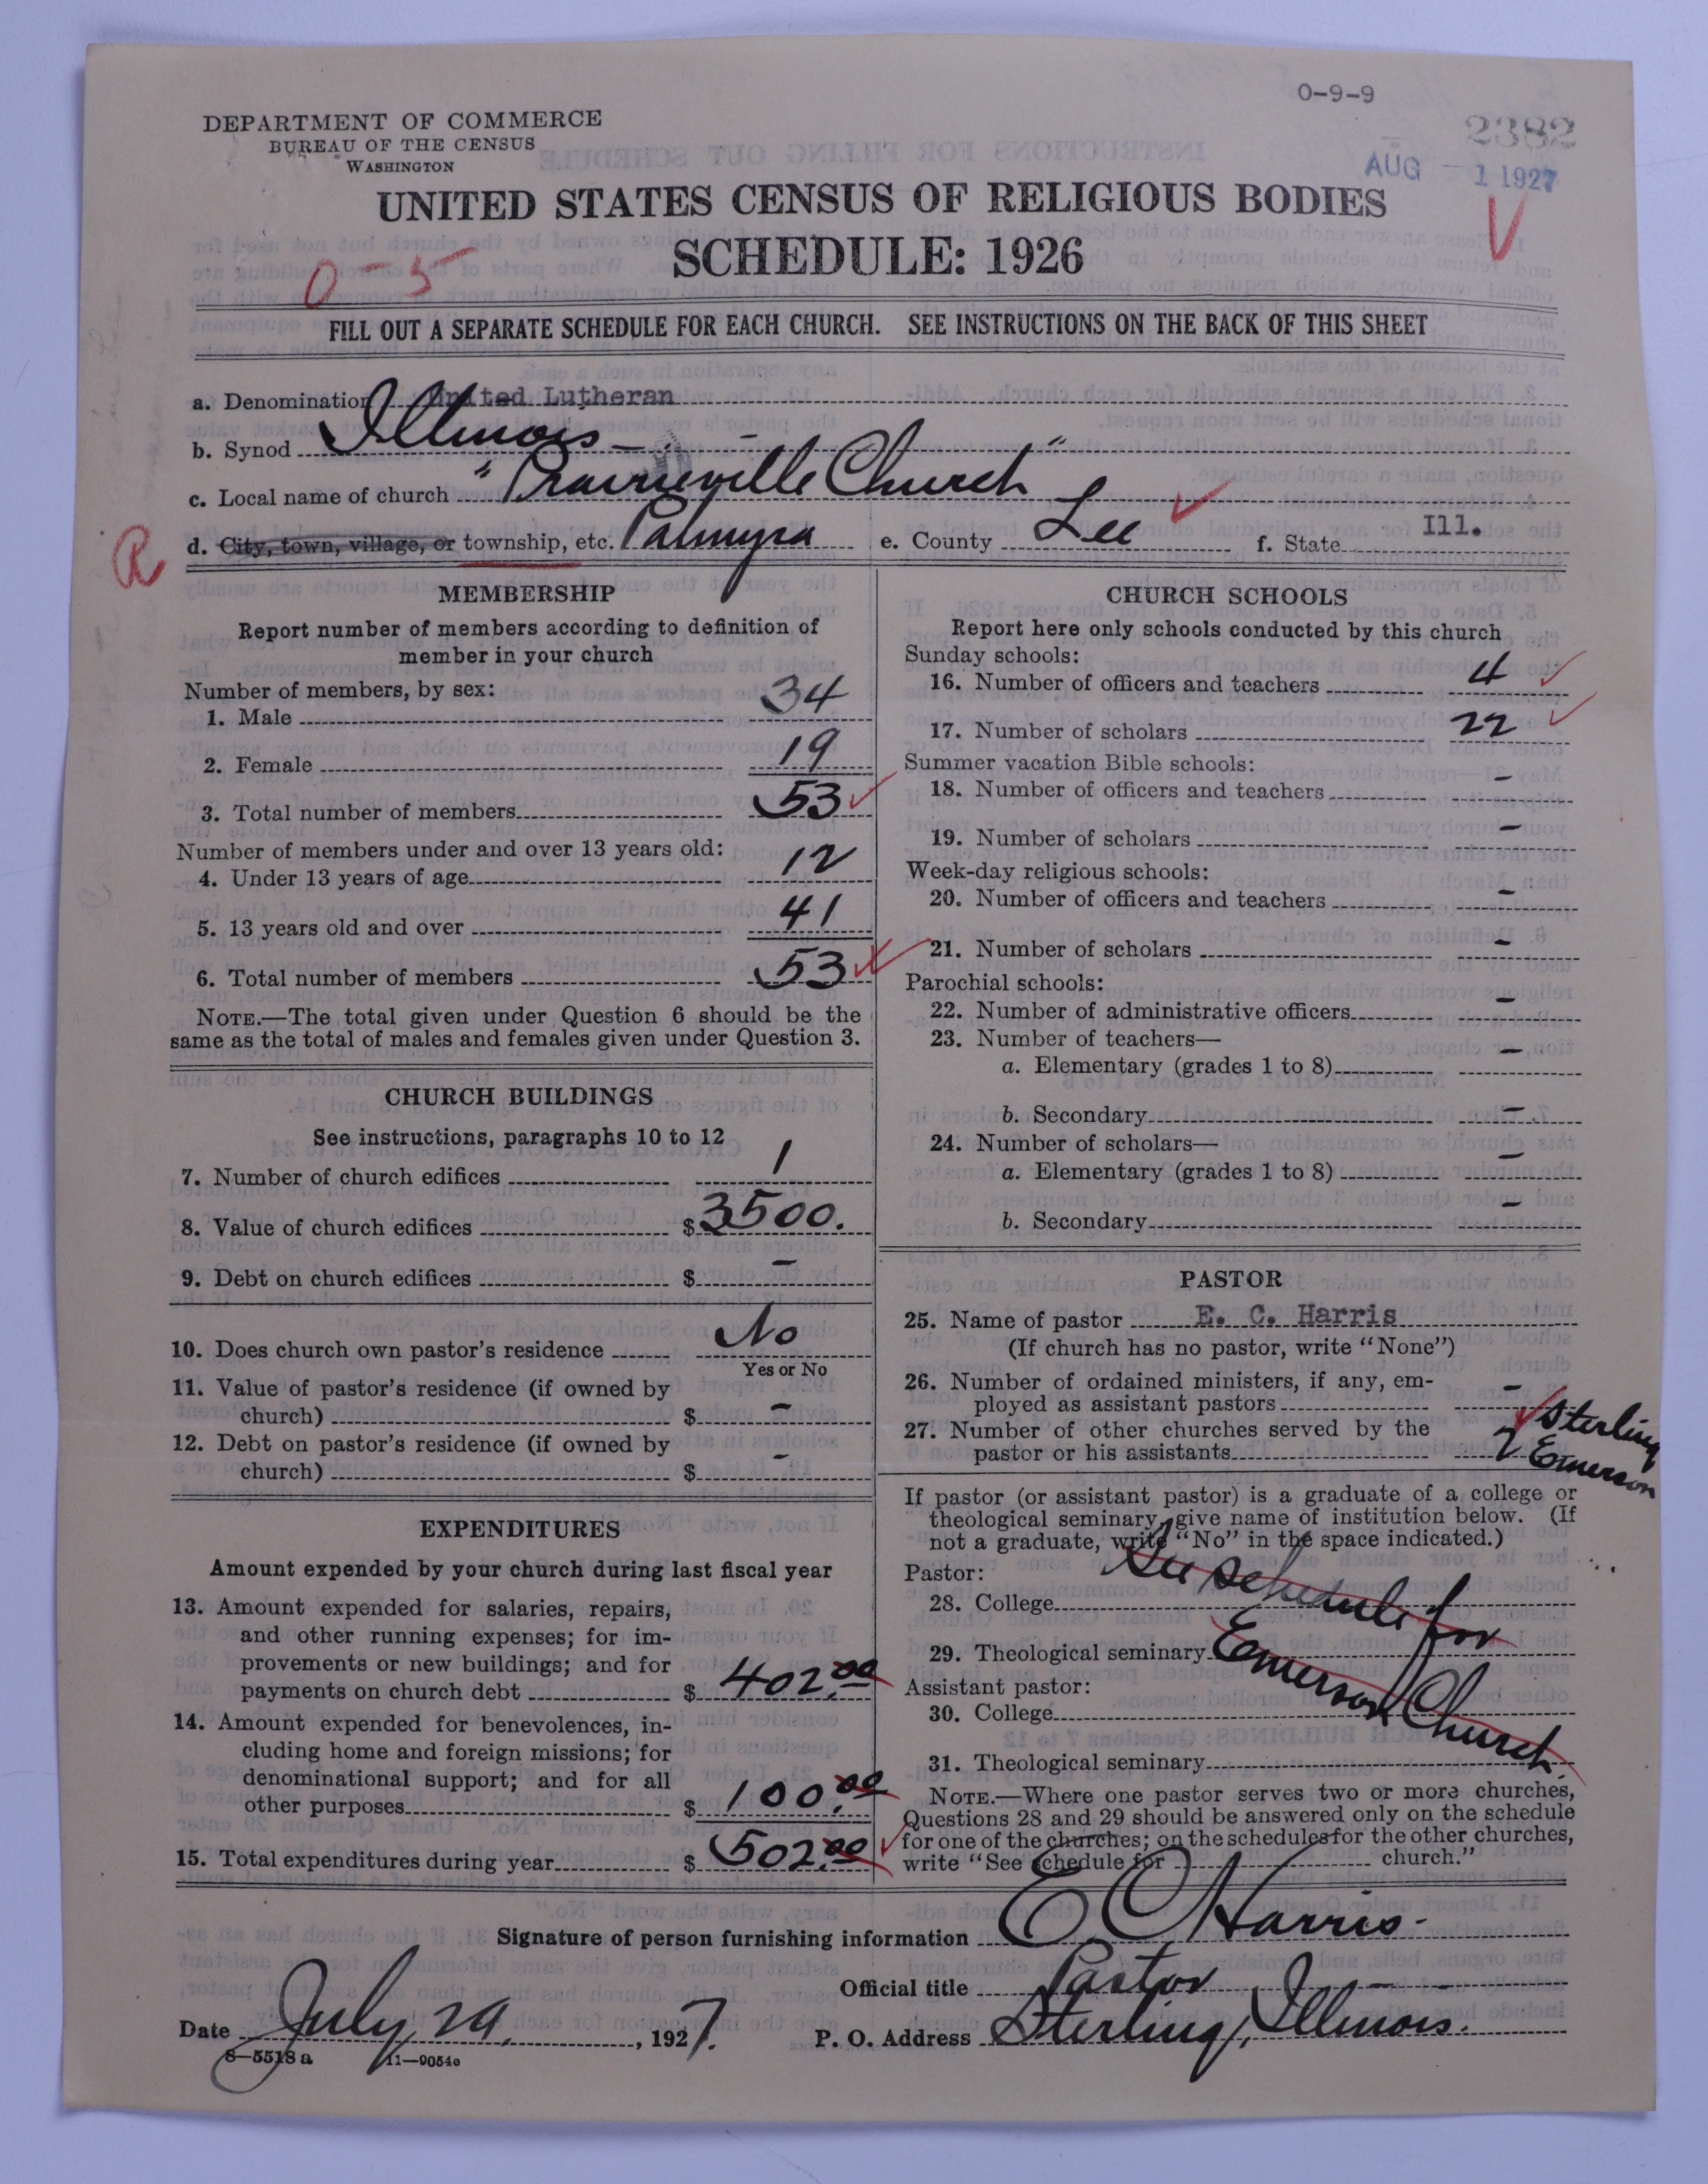 0-9-9
2382
AUG - 1 1927
DEPARTMENT OF COMMERCE
BUREAU OF THE CENSUS
WASHINGTON
UNITED STATES CENSUS OF RELIGIOUS BODIES
SCHEDULE: 1926
0-5
FILL OUT A SEPARATE SCHEDULE FOR EACH CHURCH. SEE INSTRUCTIONS ON THE BACK OF THIS SHEET
a. Denomination United Lutheran
b. Synod Illinois
c. Local name of church "Prairieville Church"
R
d. City, town, village, or township, etc. Palmyra e. County Lee f. State Ill.
MEMBERSHIP
Report number of members according to definition of
member in your church
Number of members, by sex:
1. Male 34
2. Female 19
3. Total number of members 53
Number of members under and over 13 years old:
4. Under 13 years of age 12
5. 13 years old and over 41
6. Total number of members 53
NOTE.—The total given under Question 6 should be the
same as the total of males and females given under Question 3.
CHURCH BUILDINGS
See instructions, paragraphs 10 to 12
7. Number of church edifices 1
8. Value of church edifices $ 3500.
9. Debt on church edifices $ -
10. Does church own pastor's residence No
Yes or No
11. Value of pastor's residence (if owned by
church) $ -
12. Debt on pastor's residence (if owned by
church) $ -
EXPENDITURES
Amount expended by your church during last fiscal year
13. Amount expended for salaries, repairs,
and other running expenses; for im-
provements or new buildings; and for
payments on church debt $ 402.00
14. Amount expended for benevolences, in-
cluding home and foreign missions; for
denominational support; and for all
other purposes $ 100.00
15. Total expenditures during year $ 502.00
CHURCH SCHOOLS
Report here only schools conducted by this church
Sunday schools:
16. Number of officers and teachers 4
17. Number of scholars 22
Summer vacation Bible schools:
18. Number of officers and teachers -
19. Number of scholars -
Week-day religious schools:
20. Number of officers and teachers -
21. Number of scholars -
Parochial schools:
22. Number of administrative officers -
23. Number of teachers—
a. Elementary (grades 1 to 8) -
b. Secondary -
24. Number of scholars—
a. Elementary (grades 1 to 8) -
b. Secondary -
PASTOR
25. Name of pastor E. C. Harris
(If church has no pastor, write "None")
26. Number of ordained ministers, if any, em-
ployed as assistant pastors -
27. Number of other churches served by the
pastor or his assistants 2 Sterling
Emerson
If pastor (or assistant pastor) is a graduate of a college or
theological seminary, give name of institution below. (If
not a graduate, write "No" in the space indicated.)
Pastor:
See schedule for
28. College
29. Theological seminary Emerson Church
Assistant pastor:
30. College
31. Theological seminary
NOTE.—Where one pastor serves two or more churches,
Questions 28 and 29 should be answered only on the schedule
for one of the churches; on the schedules for the other churches,
write "See schedule for church."
Signature of person furnishing information E C Harris
Official title Pastor
Date July 29, 1927. P. O. Address Sterling, Illinois.
8-5518 a 11-9054a